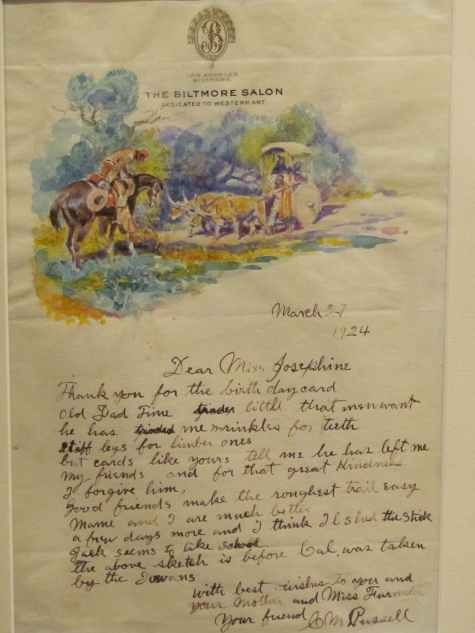 B
LOS ANGELES
BILTMORE
THE BILTMORE SALON
DEDICATED TO WESTERN ART
March 27
1924
Dear Miss Josephine
Thank you for the birth day card
Old Dad Time trades little that men want
he has traded me wrinkles for teeth
stiff legs for limber ones
but cards like yours tell me he has left me
my friends and for that great Kindness
I forgive him,
Good friends make the roughest trail easy
Mame and I are much better
a few days more and I think I'l shed the stick
Jack seems to like school
the above sketch is before Cal. was taken
by the Iowans
With best wishes to you and
your Mother and Miss
Your friend C M Russell